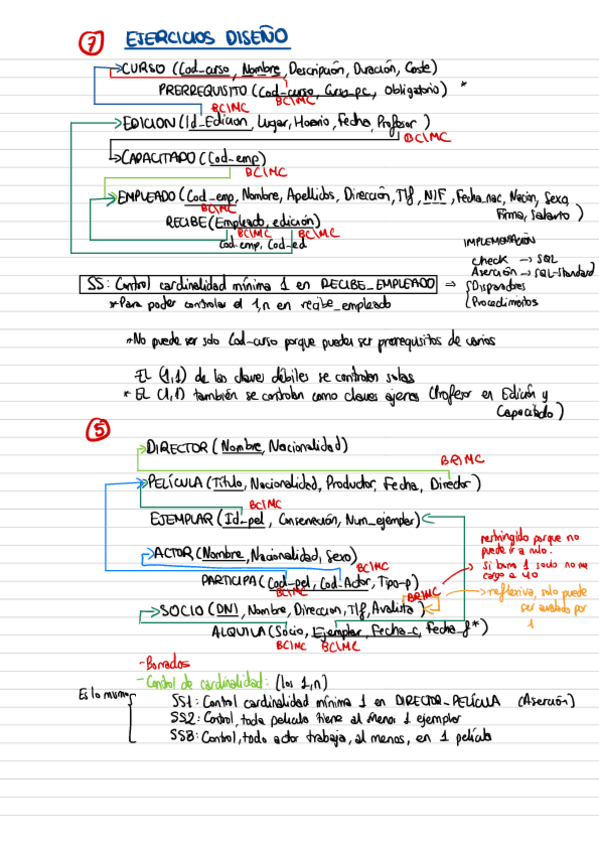 7 EJERCICIOS DISEÑO
CURSO (Cod_curso, Nombre, Descripción, Duración, Coste)
PRERREQUISITO (Cod_curso, Curso_pc, Obligatorio) *
BC/MC BC/MC
EDICION (Id_Edicion, Lugar, Horario, Fecha, Profesor)
BC/MC
CAPACITADO (Cod_emp)
BC/MC
EMPLEADO (Cod_emp, Nombre, Apellidos, Dirección, Tlf, NIF, Fecha_nac, Nación, Sexo,
Firma, Salario)
BC/MC
RECIBE (Empleado, edición)
BC/MC BC/MC
Cod_emp, Cod_ed
IMPLEMENTACIÓN
Check → SQL
Aserción → SQL-Standard
SS: Control cardinalidad mínima 1 en RECIBE_EMPLEADO ⇒ Disparadores
Procedimientos
*Para poder controlar el 1,n en recibe_empleado
*No puede ser solo Cod-curso porque pueden ser prerequisitos de varios
EL (1,1) de las claves débiles se controlan solas
* EL (1,1) también se controlan como claves ajenas (Profesor en Edición y
Capacitado)
5
DIRECTOR (Nombre, Nacionalidad)
BR/MC
PELÍCULA (Título, Nacionalidad, Productor, Fecha, Director)
BC/MC
EJEMPLAR (Id_pel, Conservación, Num_ejemplar)
ACTOR (Nombre, Nacionalidad, Sexo)
BC/MC
PARTICIPA (Cod_pel, Cod_Actor, Tipo-p)
BC/MC
BR/MC
SOCIO (DNI, Nombre, Direccion, Tlf, Avalista)
ALQUILA (Socio, Ejemplar, Fecha_c, Fecha_f*)
BC/MC BC/MC
restringido porque no
puede ir a nulo.
Si borro 1 socio no me
cargo a 40
reflexiva, solo puede
ser avalado por
1
-Borrados
-Control de cardinalidad: (los 1,n)
Es lo mismo
SS1: Control cardinalidad mínima 1 en DIRECTOR_PELÍCULA (Aserción)
SS2: Control, toda película tiene al menos 1 ejemplar
SS3: Control, todo actor trabaja, al menos, en 1 película